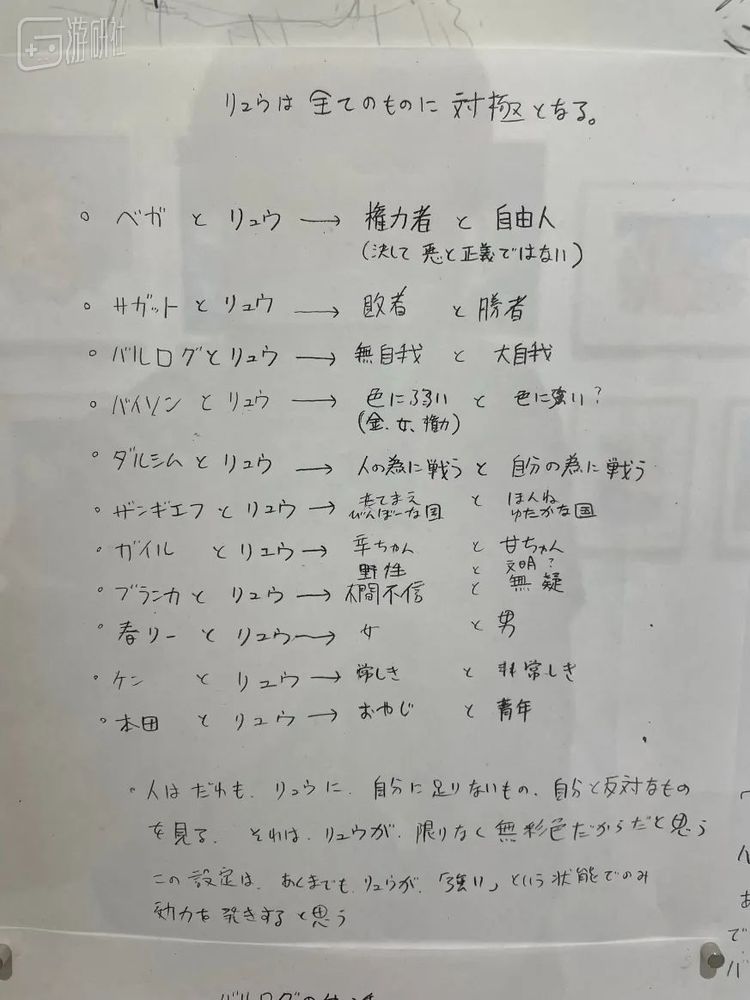 游研社
リュウは 全てのものに 対極となる。
○ ベガ と リュウ → 権力者 と 自由人
(決して 悪と正義ではない)
○ サガット と リュウ → 敗者 と 勝者
○ バルログ と リュウ → 無自我 と 大自我
○ バイソン と リュウ → 色に弱い と 色に強い?
(金、女、権力)
○ ダルシム と リュウ → 人の為に戦う と 自分の為に戦う
○ ザンギエフ と リュウ → たてまえ と ほんね
びんぼーな国 ゆたかな国
○ ガイル と リュウ → 辛ちゃん と 甘ちゃん
野性 と 文明?
○ ブランカ と リュウ → 人間不信 と 無疑
○ 春リー と リュウ → 女 と 男
・ ケン と リュウ → 常しき と 非常しき
○ 本田 と リュウ → おやじ と 青年
・人は だれも、リュウに、自分に足りないもの、自分と反対なもの
を見る。それは、リュウが、限りなく 無彩色だからだと思う
この設定は、あくまでも、リュウが、「強い」という状態でのみ
効力を発きすると思う